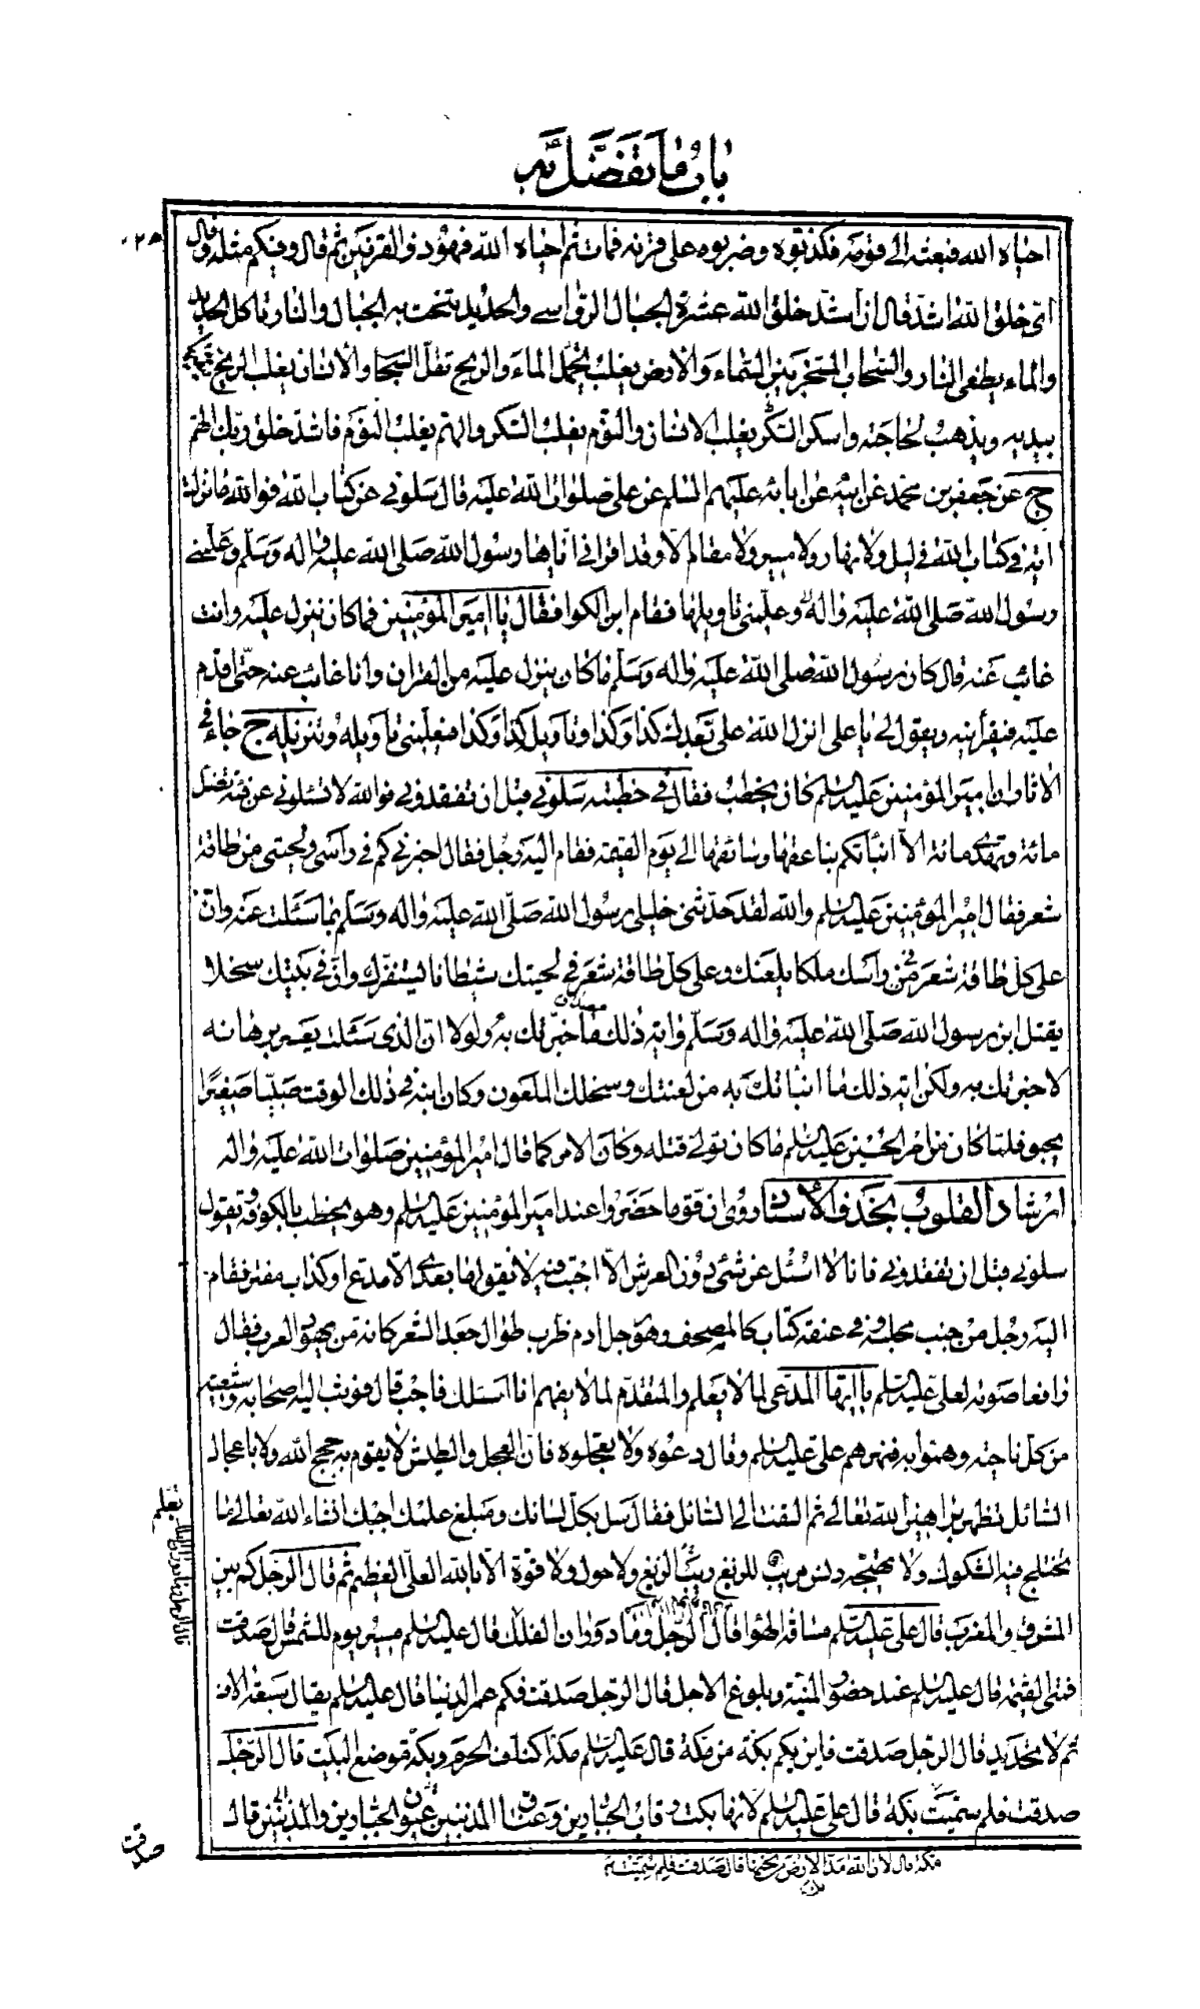 باب ما تفضل به
احياه الله فبعثه الى قومه فكذبوه وضربوه على قرنه فمات ثم احياه الله فهو ذو القرنين ثم قال وفيكم مثله وقال
اى خلق الله اشد فقال ان اشد خلق الله عشرة الجبال الرواسى والحديد ينحت به الجبال والنار تاكل الحديد
والماء يطفى النار والسحاب المسخر بين السماء والارض يعلب يحمل الماء والريح تقل السحاب والانسان يغلب الريح يتقيها
بيديه ويذهب لحاجته واسكر السكر يغلب الانسان والنوم يغلب السكر والهم يغلب النوم فاشد خلق ربك الهم
ج عن جعفر بن محمد عن ابيه عن ابائه عليهم السلم عن على صلوات الله عليه قال سلونى عن كتاب الله فوالله ما نزلت
اية فى كتاب الله فى ليل ولا نهار ولا مسير ولا مقام الا وقد اقرانى اياها رسول الله صلى الله عليه واله وسلم وعلمنى
رسول الله صلى الله عليه واله وعلمنى تاويلها فقام ابن الكوا فقال يا امير المؤمنين فما كان ينزل عليه وانت
غائب عنه قال كان رسول الله صلى الله عليه واله وسلم ما كان ينزل عليه من القران وانا غائب عنه حتى اقدم
عليه فيقرأنيه ويقول لى يا على انزل الله على بعدك كذا وكذا وتاويل كذا وكذا فيعلمنى تاويله وتنزيله ج جاء فى
الاثار ان امير المؤمنين عليه السلم كان يخطب فقال فى خطبته سلونى قبل ان تفقدونى فوالله لا تسئلونى عن فئة تضل
مائة وتهدى مائة الا انبأتكم بناعقها وسائقها الى يوم القيمة فقام اليه رجل فقال اخبرنى كم فى رأسى ولحيتى من طاقة
شعر فقال امير المؤمنين عليه السلم والله لقد حدثنى خليلى رسول الله صلى الله عليه واله وسلم بما سئلت عنه وان
على كل طاقة شعر فى رأسك ملكا يلعنك وعلى كل طاقة شعر فى لحيتك شيطانا يستفزك وان فى بيتك سخلا
يقتل ابن رسول الله صلى الله عليه واله وسلم واية ذلك مصداق ما خبرتك به ولولا ان الذى سئلت يعسر برهانه
لاخبرتك به ولكن اية ذلك ما انبأتك به من لعنتك وسخلك الملعون وكان ابنه فى ذلك الوقت صبيا صغيرا
يحبو فلما كان من امر الحسين عليه السلم ما كان تولى قتله وكان الامر كما قال امير المؤمنين صلوات الله عليه واله
ارشاد القلوب بحذف الاسناد روى ان قوما حضروا عند امير المؤمنين عليه السلم وهو يخطب بالكوفة ويقول
سلونى قبل ان تفقدونى فانا لا اسئل عن شئ دون العرش الا اجبت فيه لا يقولها بعدى الا مدع او كذاب مفتر فقام
اليه رجل من جنب مجلسه وفى عنقه كتاب كالمصحف وهو رجل ادم ظرب طوال جعد الشعر كانه من يهود العرب فقال
رافعا صوته لعلى عليه السلم يا ايها المدعى لما لا يعلم والمتقدم لما لا يفهم انا اسئلك فاجب قال فوثب اليه اصحابه وشيعته
من كل ناحية وهموا به فنهرهم على عليه السلم وقال دعوه ولا تعجلوه فان العجل والطيش لا يقوم به حجج الله ولا باعجال
السائل تظهر براهين الله تعالى ثم التفت الى السائل فقال سل بكل لسانك ومبلغ علمك اجبك انشاء الله تعالى بما
لا تختلج فيه الشكوك ولا يهيجه دنس ريب الزيغ ولا حول ولا قوة الا بالله العلى العظيم ثم قال الرجل كم بين
المشرق والمغرب قال على عليه السلم مسافة الهواء قال الرجل وما دوران الفلك قال عليه السلم مسير يوم للشمس قال صدقت
فمتى القيمة قال عليه السلم عند حضور المنية وبلوغ الاجل قال الرجل صدقت فكم عمر الدنيا قال عليه السلم يقال سبعة الاف
ثم لا تحديد قال الرجل صدقت فاين بكة من مكة قال عليه السلم مكة اكناف الحرم وبكة موضع البيت قال الرجل
صدقت فلم سميت بكة قال على عليه السلم لانها بكت رقاب الجبارين وعيون المذنبين قال
مكة قال لان الله مد الارض من تحتها قال صدقت فلم سميت
صدقت